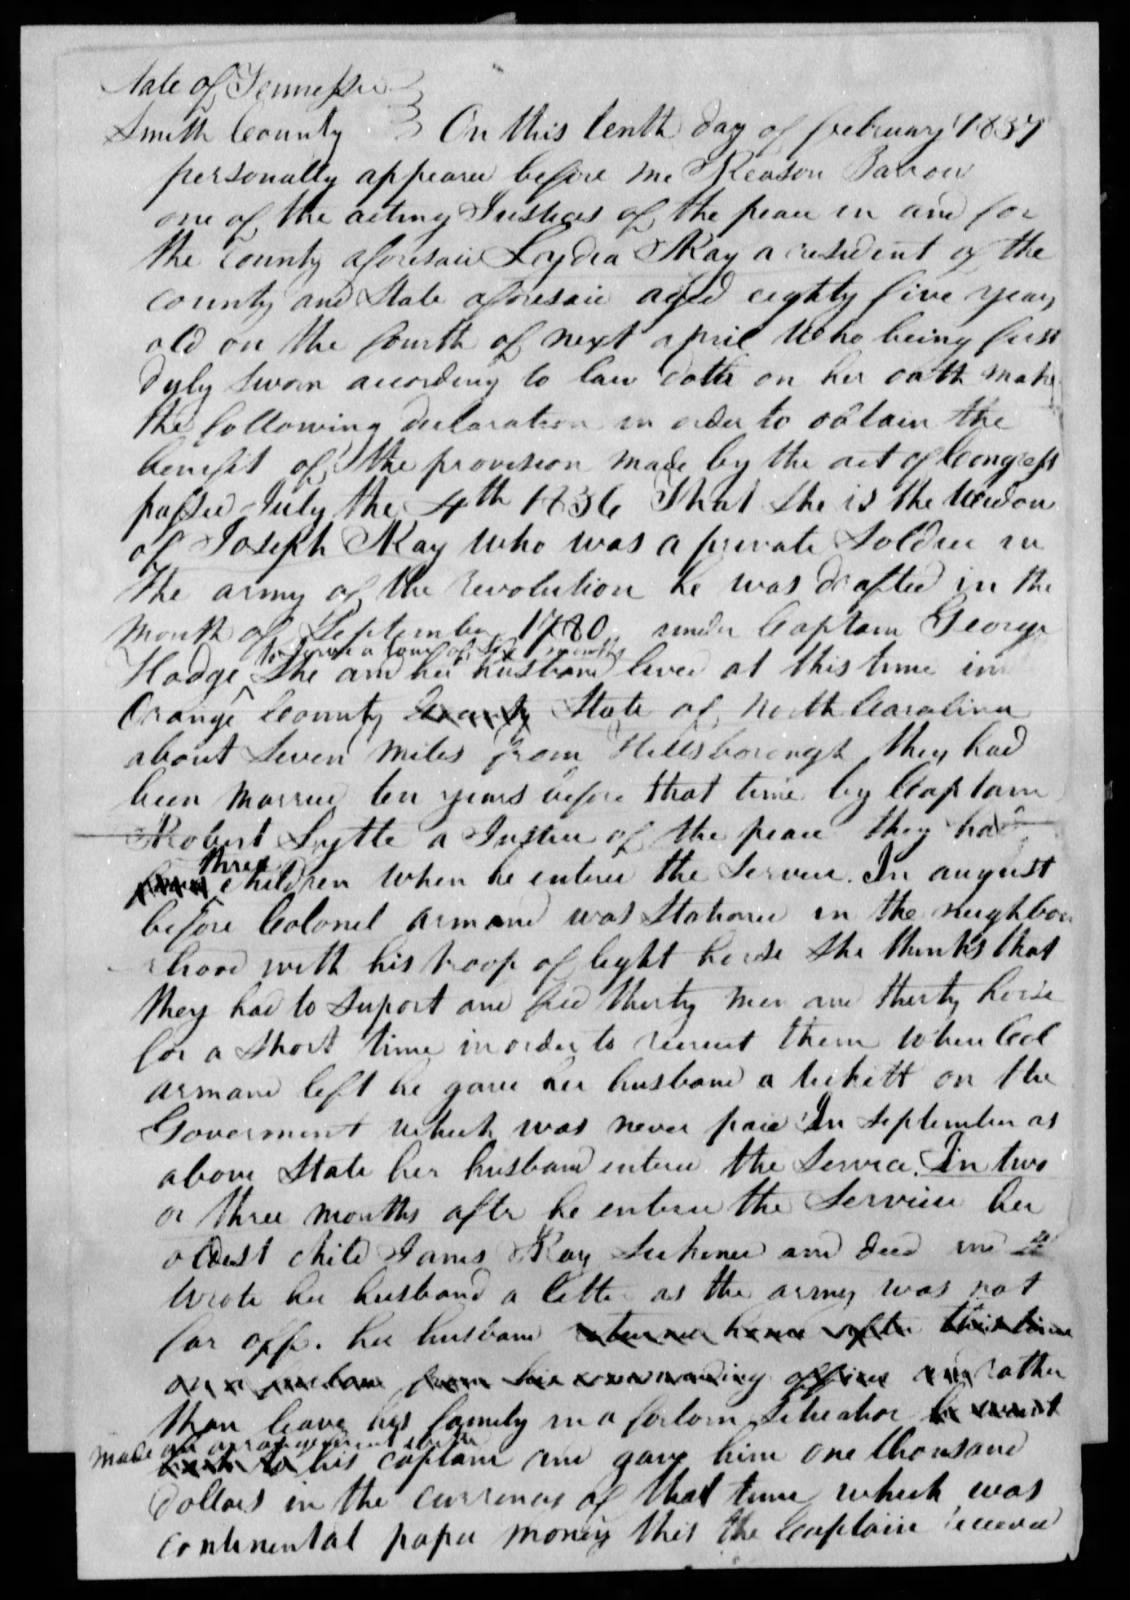 State of Tennessee
Smith County } On this tenth day of february 1837
personally appeared before me Reason
one of the acting Justices of the peace in and for
the County aforesaid Lydia Ray a resident of the
county and State aforesaid aged eighty five years
old on the fourth of next april Who being first
duly sworn according to law doth on her oath make
the following declaration in order to obtain the
benefit of the provision made by the act of Congress
passed July the 4th 1836 That she is the Widow
of Joseph Ray who was a private Soldier in
the army of the revolution he was drafted in the
Month of September 1780 under Captain George
to serve a tour of six months
Hodge She and her husband lived at this time in
Orange County State of North Carolina
about Seven Miles from Hillsborough they had
been Married ten years before that time by Captain
Robert Lytle a Justice of the peace they had
three
children when he entered the Service. In august
before Colonel armand was Stationed in the neighbour
hood with his troop of light horse She thinks that
they had to suport and feed thirty men and thirty horse
for a short time in order to recruit them When Col
armand left he gave her husband a tickett on the
Goverment which was never paid In September as
above State her husband entered the Service. In two
or three months after he entered the Service her
oldest child James Ray Sickened and died and
wrote her husband a letter as the army was not
far off. her husband returned home after this time
on a from his commanding officer and rather
than leave his family in a forlorn Situation he went
made an arrangement with
back to his captain and gave him one thousand
Dollars in the currency of that time which was
continental paper money this the Captain received